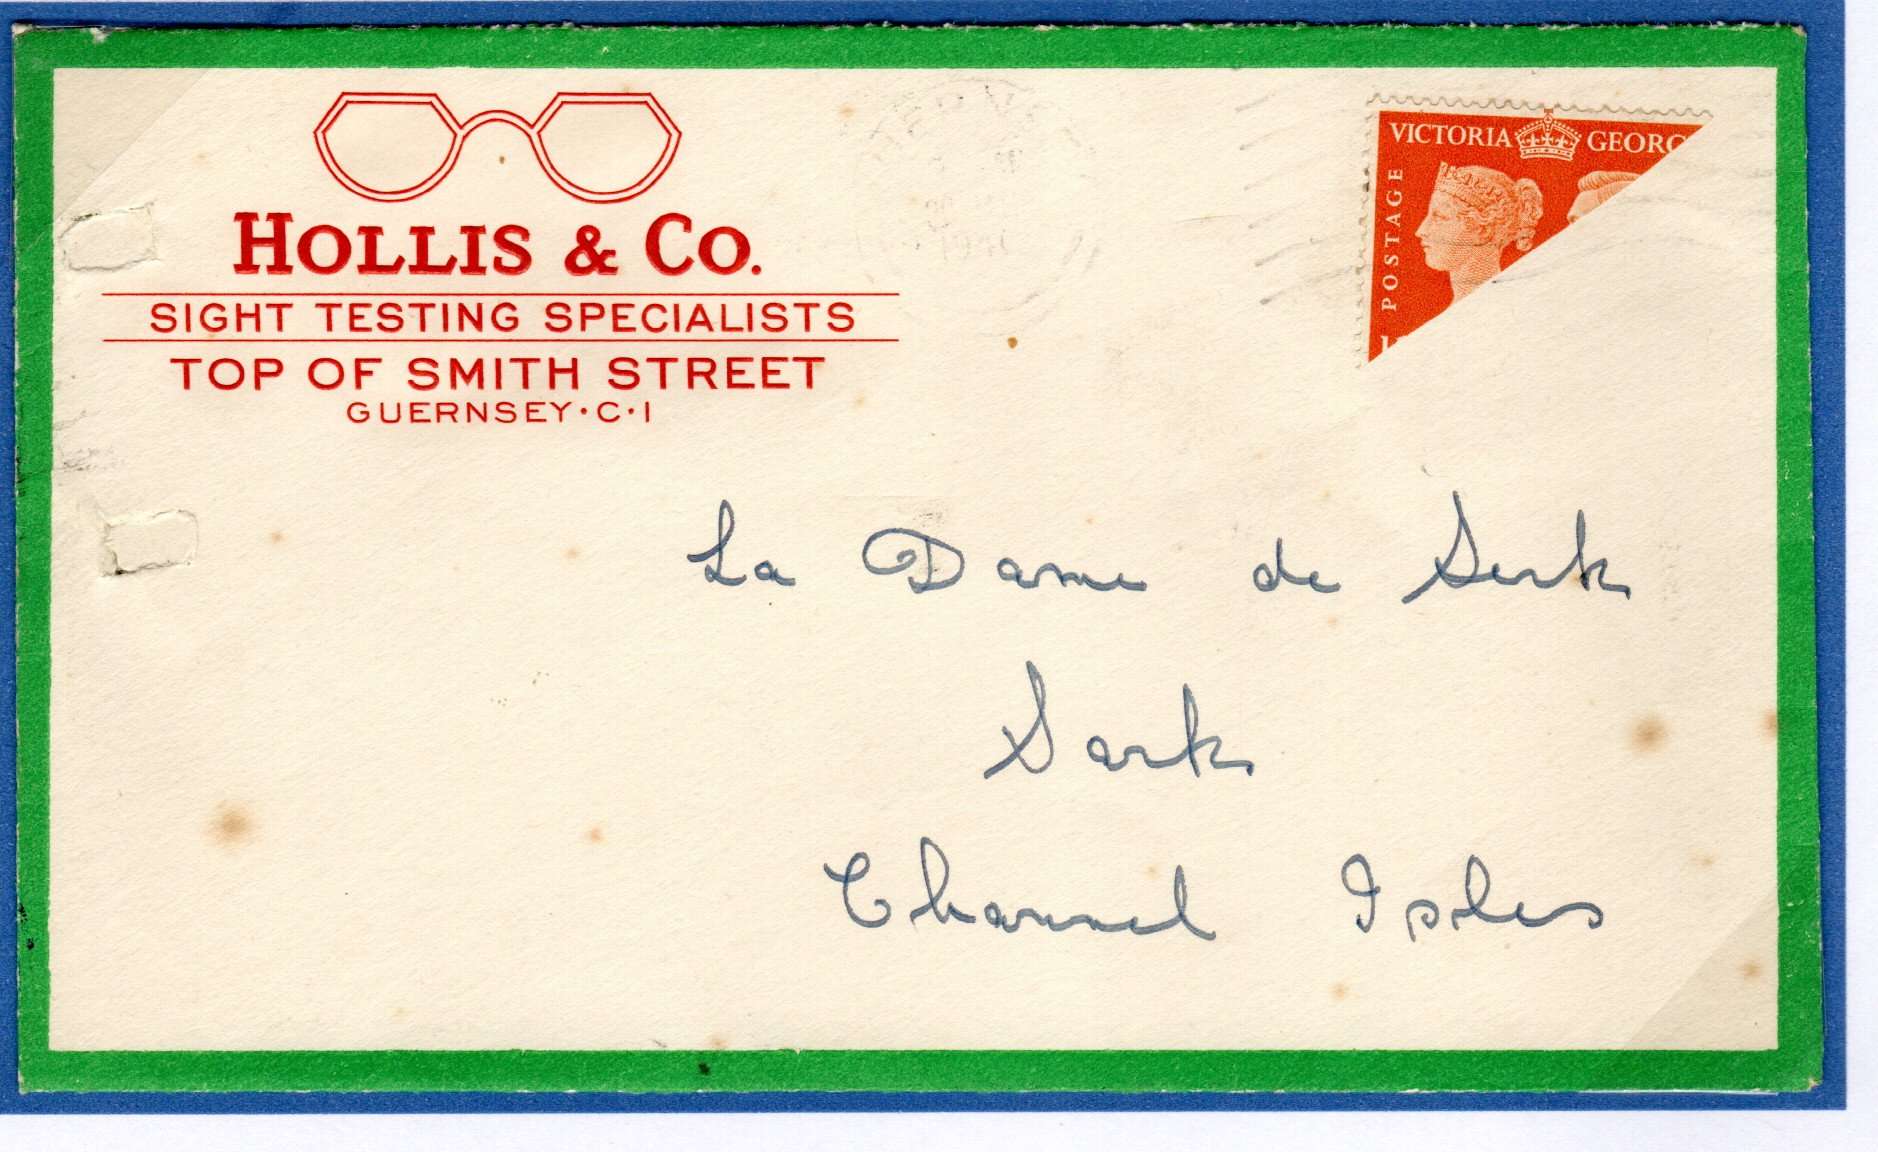 HOLLIS & CO.
SIGHT TESTING SPECIALISTS
TOP OF SMITH STREET
GUERNSEY·C·I
VICTORIA GEORG
POSTAGE
La Dame de Serk
Sark
Channel Isles